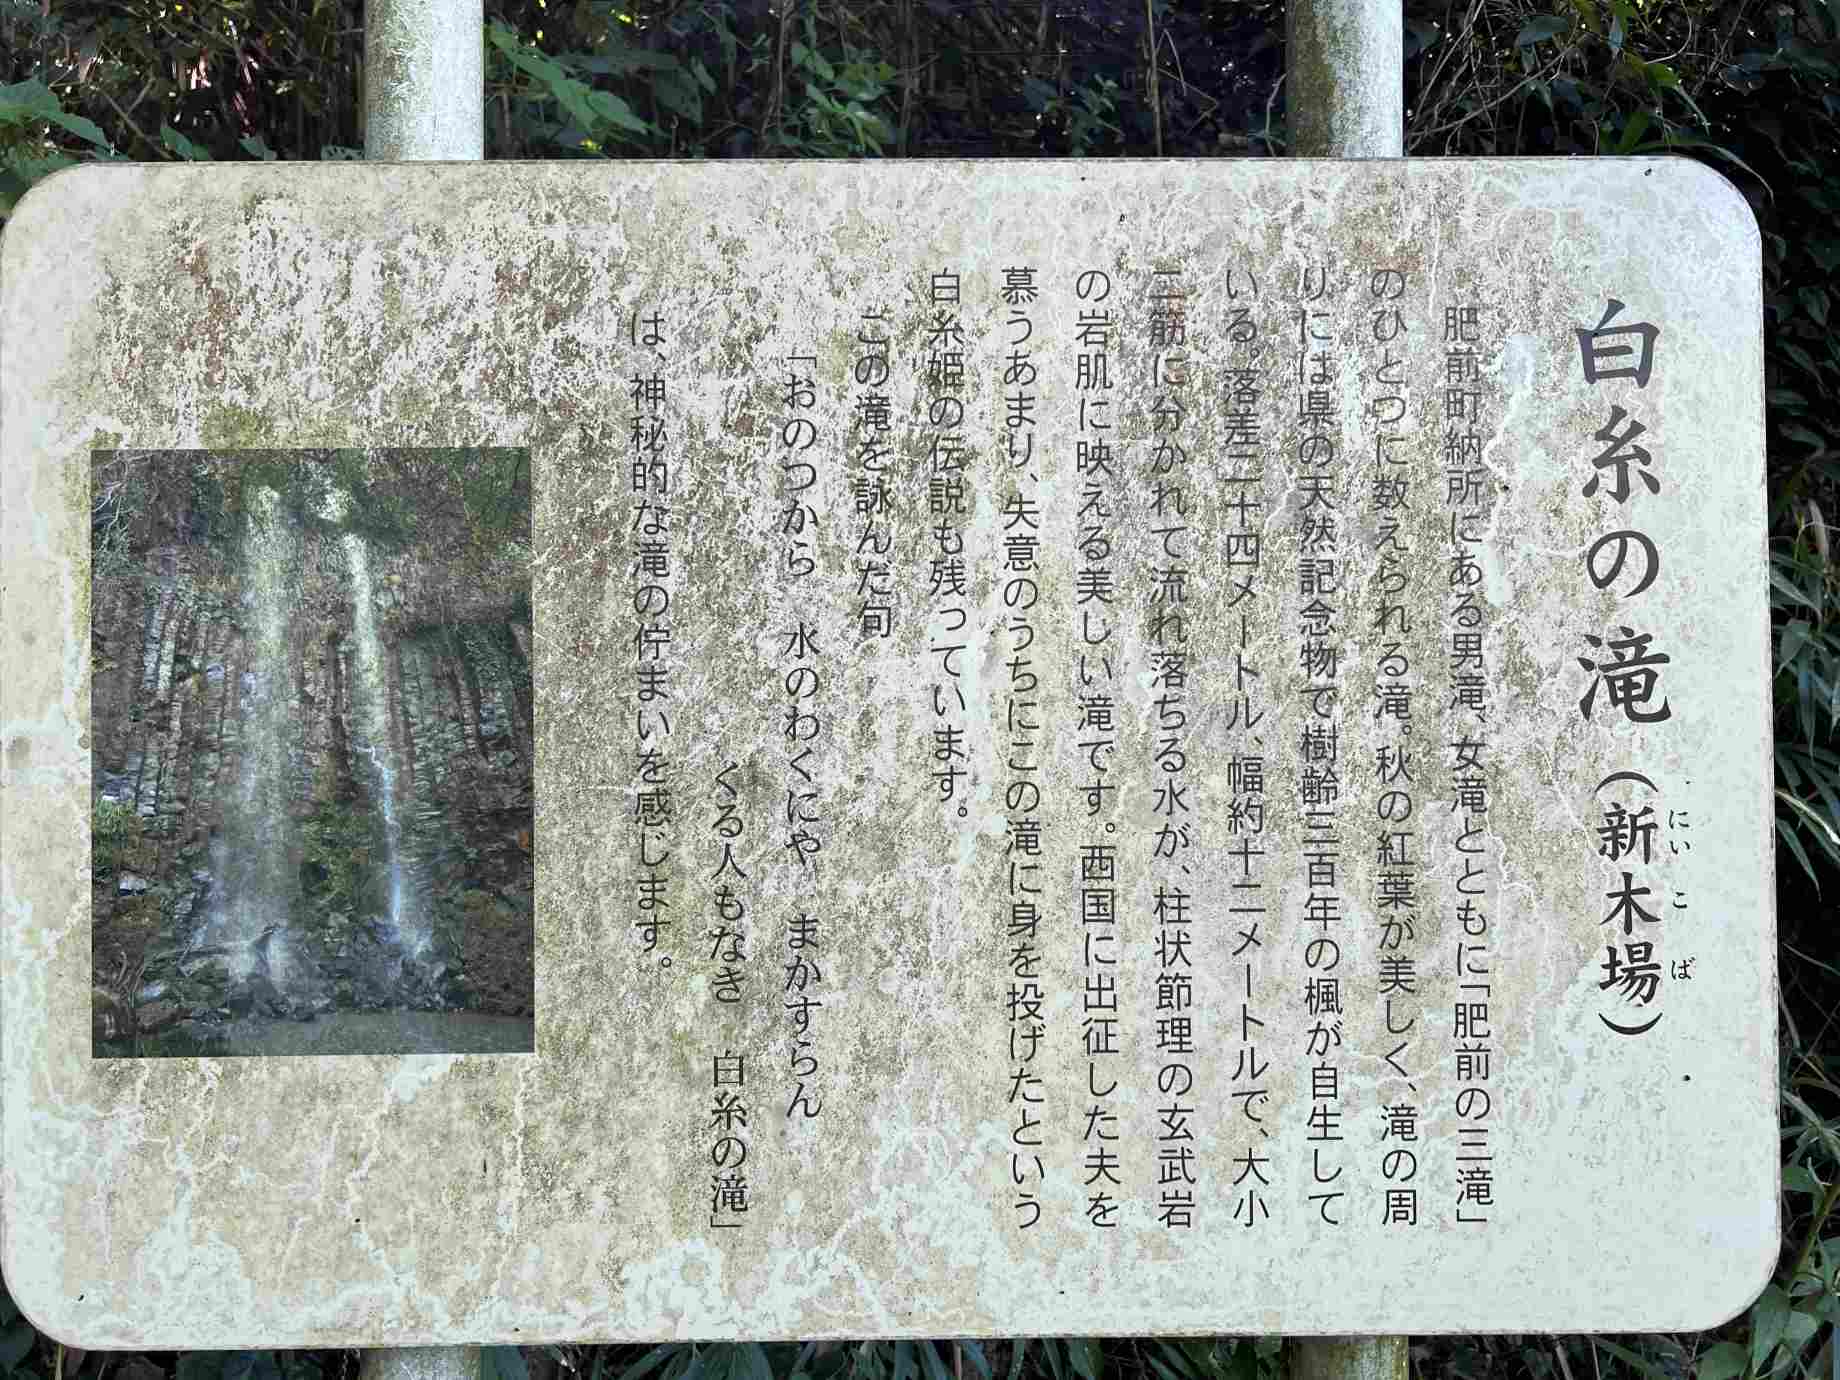 白糸の滝（新木場）
にいこば
肥前町納所にある男滝、女滝とともに「肥前の三滝」
のひとつに数えられる滝。秋の紅葉が美しく、滝の周
りには県の天然記念物で樹齢三百年の楓が自生して
いる。落差二十四メートル、幅約十二メートルで、大小
二筋に分かれて流れ落ちる水が、柱状節理の玄武岩
の岩肌に映える美しい滝です。西国に出征した夫を
慕うあまり、失意のうちにこの滝に身を投げたという
白糸姫の伝説も残っています。
この滝を詠んだ句
「おのつから　水のわくにや　まかすらん
くる人もなき　白糸の滝」
は、神秘的な滝の佇まいを感じます。